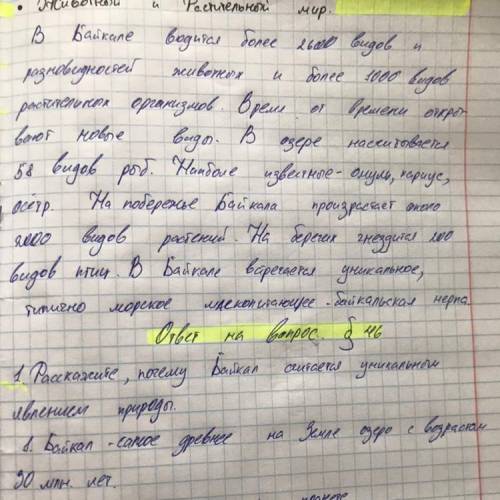 • Животный и Растительный мир.
В Байкале водится более 2600 видов и
разновидностей животных и более 1000 видов
растительных организмов. Время от времени откры-
вают новые виды. В озере насчитывается
58 видов рыб. Наиболе известные - омуль, хариус,
осётр. На побережье Байкала произрастает около
2000 видов растений. На берегах гнездится 200
видов птиц. В Байкале встречается уникальное,
типично морское млекопитающее - байкальская нерпа.
Ответ на вопрос. § 46
1. Расскажите, почему Байкал считается уникальным
явлением природы.
1. Байкал - самое древнее на Земле озеро с возрастом
20 млн. лет.
планете